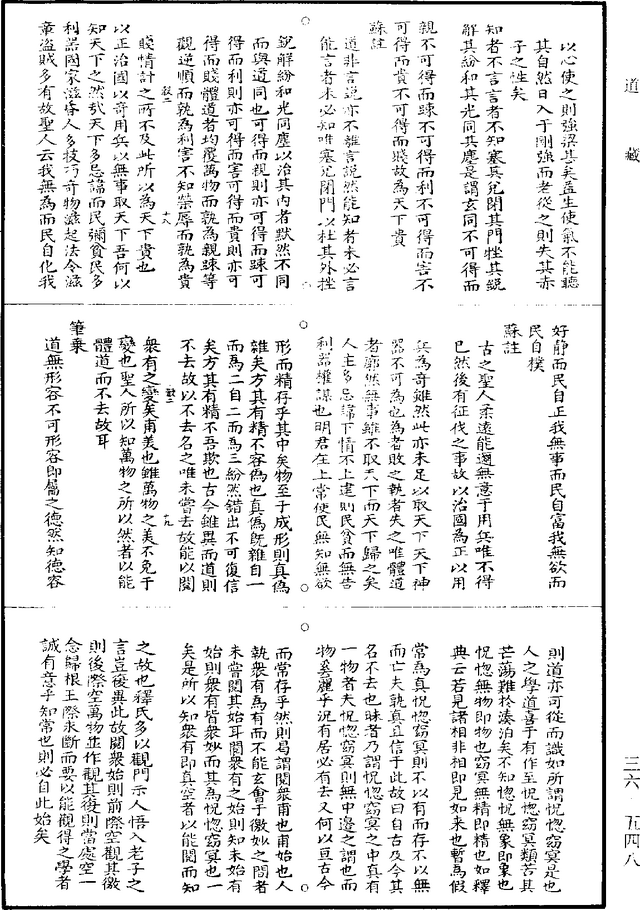 道藏
以心使之則強梁其矣益生使氣不能聽
其自然日入于剛強而老從之則失其赤
子之性矣
知者不言言者不知塞其兌閉其門挫其銳
解其紛和其光同其塵是謂玄同不可得而
親不可得而踈不可得而利不可得而害不
可得而貴不可得而賤故為天下貴
蘇註
道非言說亦不離言說然能知者未必言
能言者未必知唯塞兌閉門以杜其外挫
銳解紛和光同塵以治其內者默然不同
而與道同也可得而親則亦可得而踈可
得而利則亦可得而害可得而貴則亦可
得而賤體道者均覆萬物而孰為親踈等
觀逆順而孰為利害不知榮辱而孰為貴
賤情計之所不及此所以為天下貴也
以正治國以奇用兵以無事取天下吾何以
知天下之然哉天下多忌諱而民彌貧民多
利器國家滋昏人多技巧奇物滋起法令滋
章盜賊多有故聖人云我無為而民自化我
好靜而民自正我無事而民自富我無欲而
民自樸
蘇註
古之聖人柔遠能邇無意于用兵唯不得
已然後有征伐之事故以治國為正以用
兵為奇雖然此亦未足以取天下天下神
器不可為也為者敗之執者失之唯體道
者廓然無事雖不取天下而天下歸之矣
人主多忌諱下情不上達則民貧而無告
利器權謀也明君在上常使民無知無欲
形而精存乎其中矣物至于成形則真偽
雜矣方其有精不容偽也真偽既雜自一
而為二自二而為三紛然錯出不可復信
矣方其有精不吾欺也古今雖異而道則
不去故以不去名之唯未嘗去故能以閱
衆有之變矣甫美也雖萬物之美不免于
變也聖人所以知萬物之所以然者以能
體道而不去故耳
筆乗
道無形容不可形容即屬之德然知德容
則道亦可從而識如所謂恍惚窈冥是也
人之學道喜于有作至恍惚窈冥類苦其
芒蕩難於湊泊矣不知惚恍無象即象也
恍惚無物即物也窈冥無精即精也如釋
典云若見諸相非相即見如来也暫為假
常為真恍惚窈冥則不以有而存不以無
而亡夫孰真且信于此故曰自古及今其
名不去也昧者乃謂恍惚窈冥之中真有
一物者夫恍惚窈冥則無中邊之謂也而
物奚麗乎況有居必有去又何以亘古今
而常存乎然則曷謂閱衆甫也甫始也人
執衆有為有而不能玄會于徼妙之間者
未嘗閱其始耳閱衆有之始則知未始有
始則衆有皆衆妙而其為恍惚窈冥也一
矣是所以知衆有即真空者以能閱而知
之故也釋氏多以觀門示人悟入老子之
言豈復異此故閱衆始則前際空觀其徼
則後際空萬物並作觀其復則當處空一
念歸根三際永斷而要以能觀得之學者
誠有意乎知常也則必自此始矣
三六 五四八